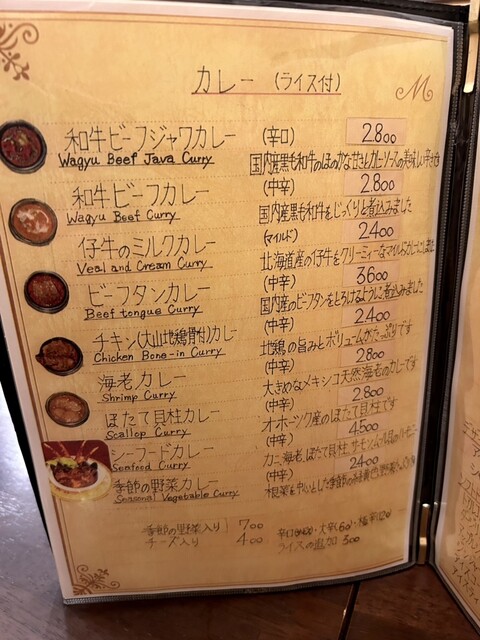 カレー (ライス付)
M
和牛ビーフジャワカレー (辛口) 2.800
Wagyu Beef Java Curry 国内産黒毛和牛のほのかな甘さとカレーソースの美味しい辛さを
和牛ビーフカレー (中辛) 2.800
Wagyu Beef Curry 国内産黒毛和牛をじっくりと煮込みました
仔牛のミルクカレー (マイルド) 2.400
Veal and Cream Curry 北海道産の仔牛をクリーミィーなマイルドカレーにしました
ビーフタンカレー (中辛) 3600
Beef tongue Curry 国内産のビーフタンをとろけるように煮込みました
チキン(大山地鶏骨付)カレー (中辛) 2.400
Chicken Bone-in Curry 地鶏の旨みとボリュームがたっぷりです
海老カレー (中辛) 2800
Shrimp Curry 大きめなメキシコ天然海老のカレーです
ほたて貝柱カレー (中辛) 2.800
Scallop Curry オホーツク産のほたて貝柱です
シーフードカレー (中辛) 4.500
Seafood Curry カニ、海老、ほたて貝柱、サーモン
季節の野菜カレー (中辛) 2400
Seasonal Vegetable Curry 根菜を中心とした季節の
季節の野菜入り 700
チーズ入り 400
ライスの追加 300